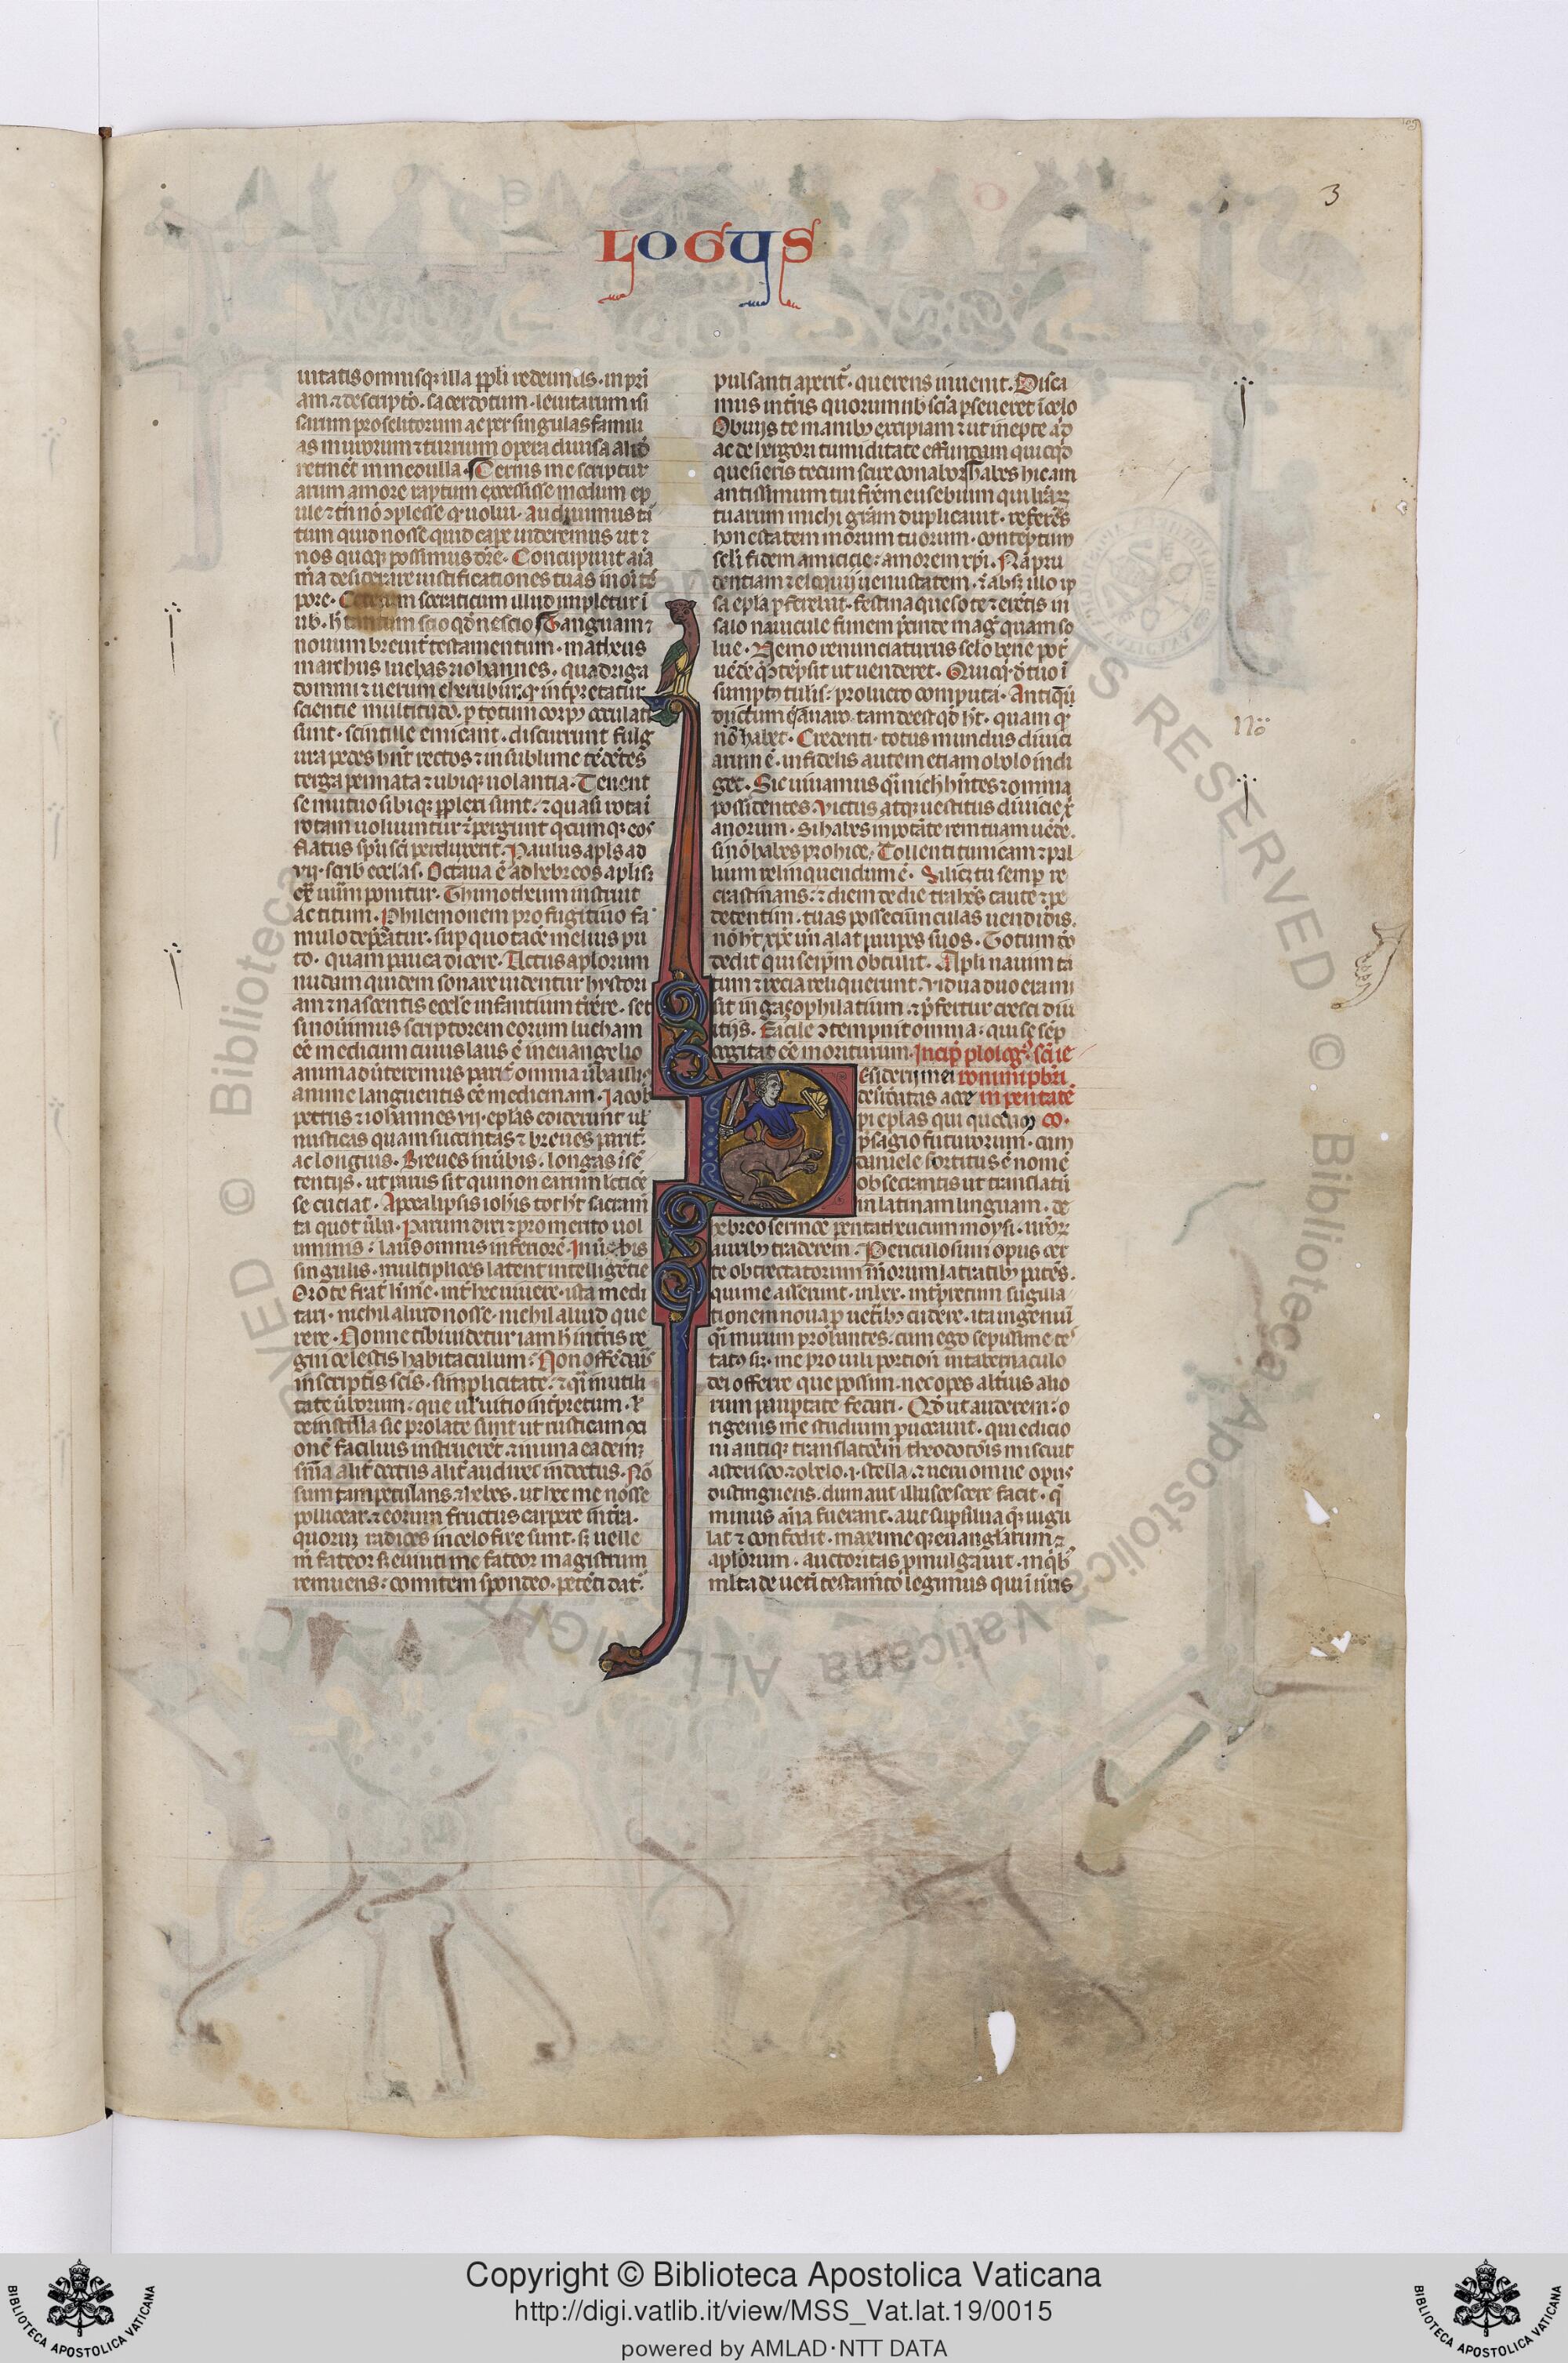 LOGUS
3
uitatis omnisque illa ppli redeuntis. in pri
am ⁊ descriptō. sacerdotum. leuitarum isr̄
sarum proselitorum ac per singulas famili
as murorum ⁊ turrium opera diuisa aliud
retinēt in medulla. Cernis me scriptur
arum amore raptum excessisse modum ep
ule ⁊ tn̄ nō ꝯplesse qͥ uolui. audiuimus tā
tum quid nosse quid cupe uideremus ut ⁊
nos quoqꝫ possimus dr̄e. Concupiuit aīa
m̄a desiderare iustificationes tuas in oī tē
pore. Ceterum socraticum illud impletur ī
nob. h̄ tantum scio qd nescio. Tanguam ⁊
nouum breuit̄ testamentum. matheus
marchus luchas ⁊ iohannes. quadriga
domini ⁊ uerum cherubin. qd̄ int̄pretatur
scientie multitudo. p totum corpꝰ occulati
sunt. scintille emicant. discurrunt fulg
ura pedes hn̄t rectos ⁊ in sublime tēdētes
terga pennata ⁊ ubiqꝫ uolantia. Tenent
se mutuo sibiqꝫ pplexi sunt. ⁊ quasi rota ī
rotam uoluuntur ⁊ pergunt qcumqꝫ eos
flatus spūs sc̄i perduxerit. Paulus apls ad
vii. scrib eccl̄as. Octaua ē ad hebreos a plisꝫ
ex̄ nūm ponitur. Thimotheum instruit
ac titum. Philemonem pro fugitiuo fa
mulo dep̄catur. sup quo tacē melius pu
to. quam pauca dicere. Actus aplorum
nudam quidem sonare uidentur hystori
am ⁊ nascentis eccl̄e infantium texere. set
si nouimus scriptorem eorum lucham
eē medicum cuius laus ē in euangelio
animaduteremus parit̄ omnia ūba illiꝰ
anime languentis eē medicinam. Jacob
petrus ⁊ iohannes vii. eplas ediderunt ul̄
misticas quam succintas ⁊ breues parit̄.
ac longius. Breues in ūbis. longas ī sē
tentijs. ut rarus sit qui non earum lectiōe
se cuciat. Apocalipsis iohīs tot ht̄ sacram̄
ta quot ūba. Parum dixi ⁊ pro merito uol
uminis: laus omnis inferiorē. In ūbis
singulis. multiplices latent intelligētie
Oro te frat̄ kīme. int̄ hec uiuere. ista medi
tari. nichil aliud nosse. nichil aliud que
rere. Nonne tibi uidetur iam h̄ in t̄ris re
gni celestis habitaculum: Non offēdaris
in scriptis sc̄is. simplicitate. ⁊ qͥ in utili
tate ūborum: que ul̄ uitio int̄pretum. ul̄
de industria sic prolate sunt ut rusticam ꝯci
onē facilius instruerēt. ⁊ in una eademꝫ
sn̄ia alit̄ doctus alit̄ audiret indoctus. Nō
sum tam petulans ⁊ hebes. ut hec me nosse
pollicear. ⁊ eorum fructus carpere in t̄ra.
quorum radices in celo fixe sunt. sꝫ uelle
m̄ fateor sꝫ eniti me fateor magistrum
renuens: comitem spondeo. petēti dat̄.
pulsanti aperit̄. querens inuenit. Disca
mus in t̄ris quorum nb̄ scīa pseueret ī celo
Obuijs te manibꝰ excipiam ⁊ ut inepte aliqd
ac de hrigori tumiditate effundam quicqd
quesieris tecum scire conabor. Habes hic am
antissimum tui frēm eusebium qui l̄rarꝫ
tuarum michi grām duplicauit. referēs
honestatem morum tuorum. contēptum
seli fidem amicicie: amorem xp̄i. Nā pru
dentiam ⁊ eloquij uenustatem. ⁊ absqꝫ illo ip
sa epla p̄ferebat. festina queso te ⁊ herētis in
salo nauicule funem p̄cinde mag̃ quam so
lue. Nemo renunciaturus selo bene pot̄
uēdē qd ꝯtēpsit ut uenderet. Quicqd̄ d̄ tuo ī
sumptꝰ tulis: pro lucro computa. Antiqū
dictum ē auaro tam deest qd ht̄. quam qd
nō habet. Credenti totus mundus diuici
arum ē. infidelis autem etiam obolo indi
get. Sic uiuamus qͥ nichil hn̄tes ⁊ omnia
possidentes. Victus atqꝫ uestitus diuicie xp̄i
anorum. Si habes in potāte rem tuam uēde.
si nō habes prohice. Tollenti tunicam ⁊ pal
lium relinquendum ē. Scilicꝫ tu semp re
crastinans: ⁊ diem de die trahēs caute ⁊ pe
detentim. tuas possessiūnculas uendidis.
nō ht̄ xp̄c un̄ alat paupes suos. Totum dō
dedit qui seipm obtulit. Apli nauim tā
tum ⁊ recia reliquerunt. Vidua duo eram̄
sit in gazophilatium. ⁊ p̄fertur cresci diui
itijs. Facile ꝯtempnit omnia: qui se sēp
cogitat eē moriturum. Incip̄ plologꝰ sc̄i ie
esiderij mei ronimi pbr̄i
desideratas acce in pentate
pi eplas qui quodam co.
p̄sagio futurorum. cum
daniele sortitus ē nomē
obsecrantis ut translatū
in latinam linguam. de
ebreo sermōe pentatheucum moysi. nr̄orꝫ
auribꝰ traderem. Periculosum opus cer
te obtrectatorum m̄orum latratibꝰ patēs.
qui me asserunt. in lxx. int̄pretum sugilla
tionem noua p uet̄ibꝰ cudere. ita ingeniū
qͥ uinum probantes. cum ego sepissime te
tatꝰ sī. me pro uili portioē in tabernaculo
dei offerre que possim. nec opes alt̄ius alio
rum paupertate fedari. Qd ut auderem: o
rigenis me studium puocauit. qui edicio
ni antiqͤ translatōem theodotōis miscuit
asterisco ⁊ obelo. i. stella. ⁊ ueru omne opus
distinguens. dum aut illucescere facit. q̄
minus an̄a fuerant. aut supflua qͥqꝫ iugu
lat ⁊ confodit. maxime qꝫ euanglarum ⁊
aplorum. auctoritas pmulgauit. in qͥbꝰ
ml̄ta de uet̄i testam̄to legimus que ī nr̄is
no
Copyright © Biblioteca Apostolica Vaticana
http://digi.vatlib.it/view/MSS_Vat.lat.19/0015
powered by AMLAD·NTT DATA
BIBLIOTECA APOSTOLICA VATICANA
BIBLIOTECA APOSTOLICA VATICANA
© Biblioteca Apostolica Vaticana ALL RIGHTS RESERVED